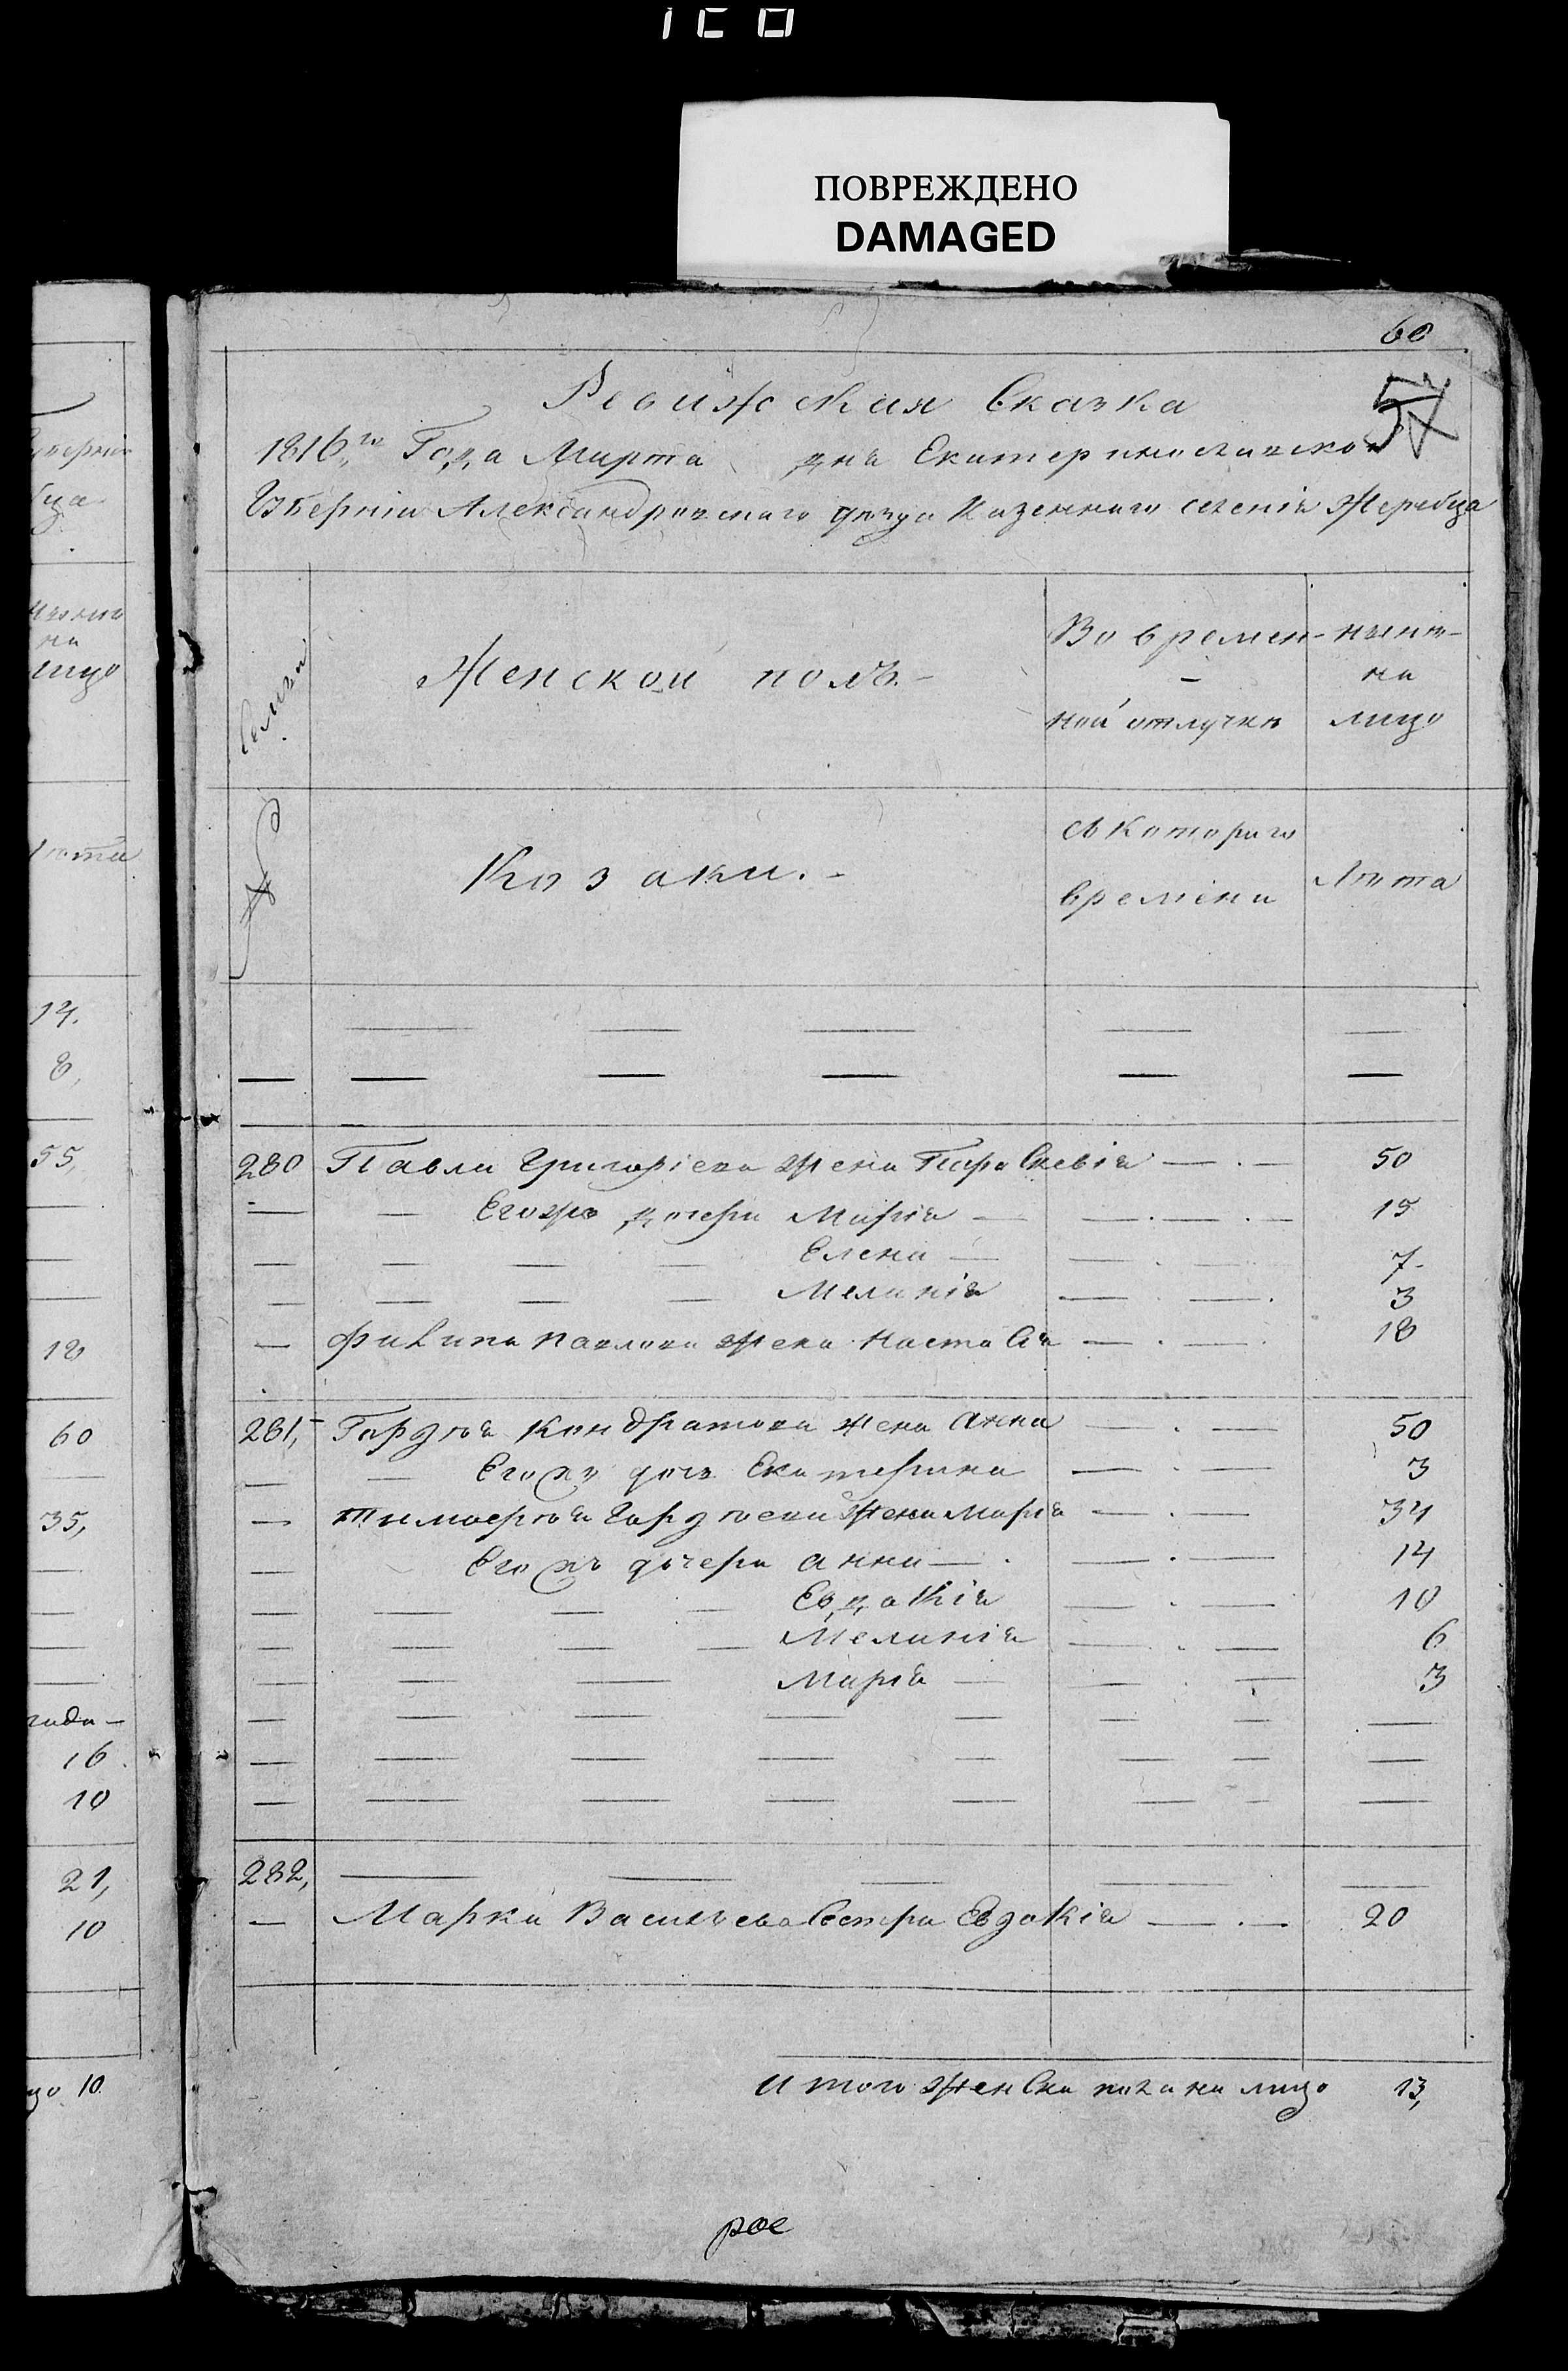 ПОВРЕЖДЕНО
DAMAGED
60
57
Ревижская Сказка
1816го Года Марта дня Екатеринославской
Губерніи Александровскаго уезда Казеннаго селенія Жеребца
Женской полъ
Во времен-
ной отлучке
ныне
на
лицо
Козаки.
съ котораго
времени
Лета
280 Павла Григоріева жена Параскевія 50
Егоже дочери Марія 15
Елена 7
Меланія 3
Филипа Павлова жена Настасія 18
281, Гордея Кондратова жена Анна 50
Егожъ дочь Екатерина 3
Тимофея Гордеева жена Марія 34
Егожъ дочери Анна 14
Евдокія 10
Меланія 6
Марія 3
282,
Марка Васильева Сестра Евдокія 20
Итого женска пола на лицо 13,
рое
14.
8,
55,
18
60
35,
года
16
10
21,
10
10